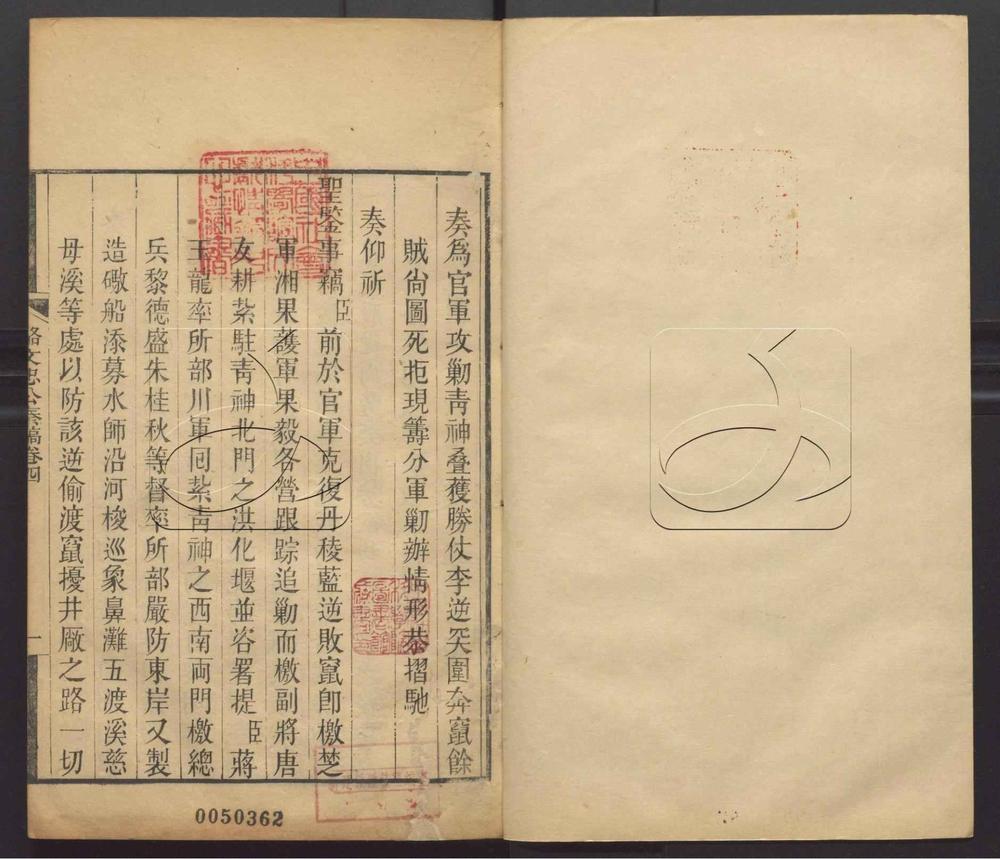 奏為官軍攻勦靑神叠獲勝仗李逆突圍奔竄餘
賊尙圖死拒現籌分軍勦辦情形恭摺馳
奏仰祈
聖鑒事竊臣前於官軍克復丹稜藍逆敗竄卽檄楚
軍湘果護軍果毅各營跟踪追勦而檄副將唐
友耕紮駐靑神北門之洪化堰並咨署提臣蔣
玉龍率所部川軍囘紮靑神之西南兩門檄總
兵黎德盛朱桂秋等督率所部嚴防東岸又製
造礮船添募水師沿河梭巡象鼻灘五渡溪慈
母溪等處以防該逆偷渡竄擾井廠之路一切
駱文忠公奏稿卷四
一
0050362